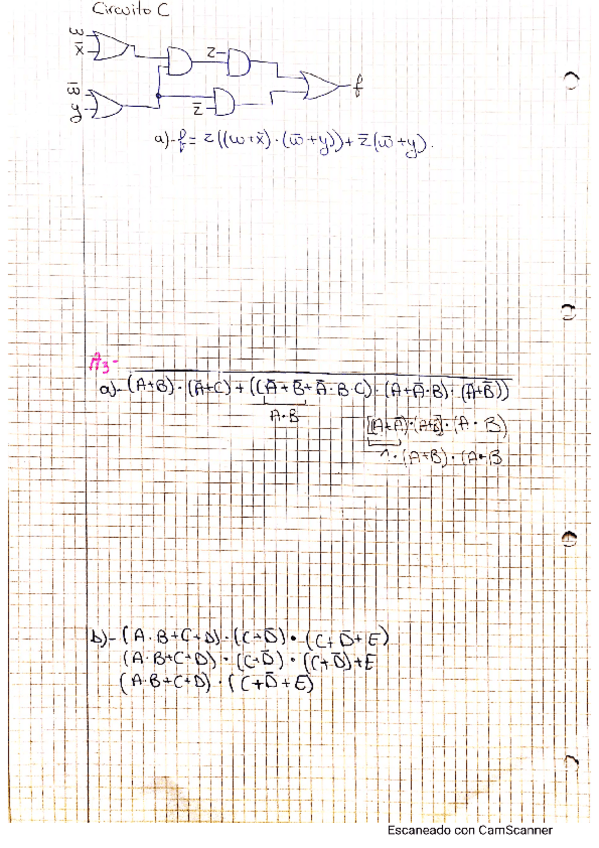 Circuito C
w
x̄
z
w̄
y
z̄
f
a)- f = z((w+x̄)·(w̄+y))+z̄(w̄+y).
A3-
a)- (A+B)·(Ā+C)+((Ā+B̄+Ā·B·C)·(A+Ā·B)·(Ā+B̄))
A·B
[(A+Ā)·(A+B)]·(A·B)
1·(A+B)·(A·B
b)- (A·B+C+D)·(C+D̄)·(C+D̄+E)
(A·B+C+D)·(C+D̄)·(C+D̄)+E
(A·B+C+D)·(C+D̄+E)
Escaneado con CamScanner